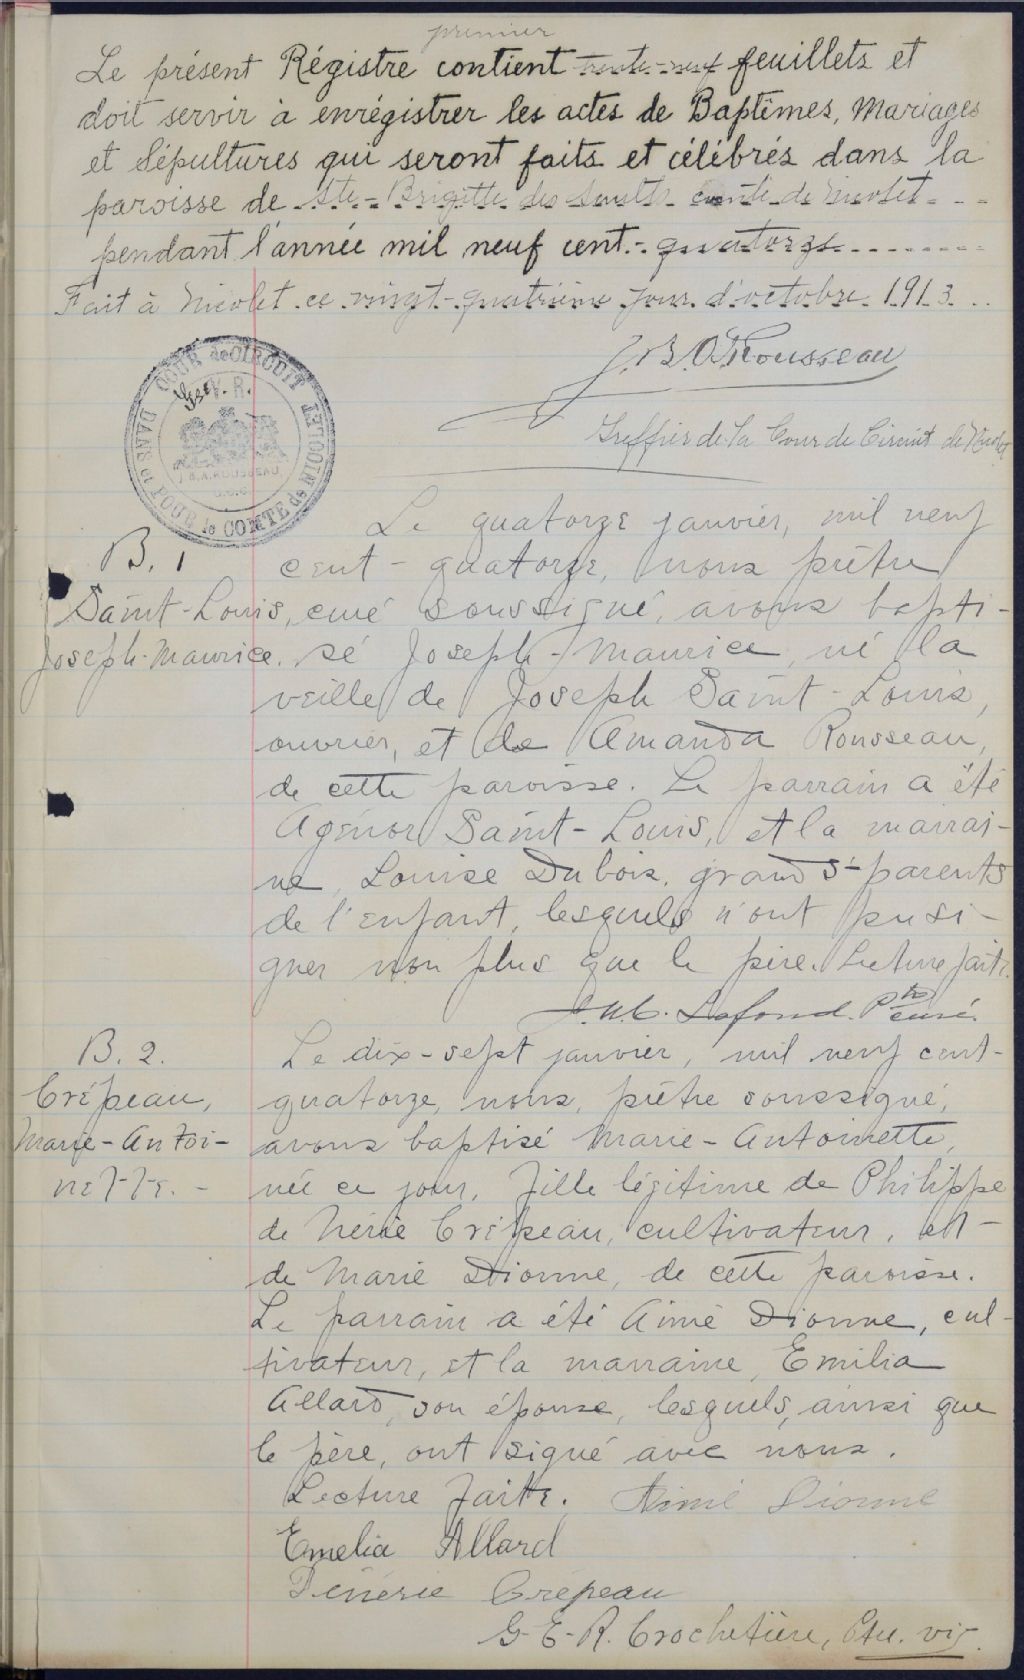 premier
Le présent Régistre contient trente-neuf feuillets et
doit servir à enrégistrer les actes de Baptêmes, Mariages
et Sépultures qui seront faits et célébrés dans la
paroisse de Ste-Brigitte des Saults comté de Nicolet
pendant l'année mil neuf cent-quatorze
Fait à Nicolet ce vingt-quatrième jour d'octobre 1913
J.B.O. Rousseau
Greffier de la Cour de Circuit de Nicolet
COUR de CIRCUIT DANS et POUR le COMTE de NICOLET
V. R.
ROUSSEAU
Le quatorze janvier, mil neuf
B. 1
cent-quatorze, nous prêtre
Saint-Louis, curé soussigné, avons bapti-
Joseph-Maurice. sé Joseph-Maurice, né la
veille de Joseph Saint-Louis,
ouvrier, et de Amanda Rousseau,
de cette paroisse. Le parrain a été
Agénor Saint-Louis, et la marrai-
ne, Louise Dubois, grands-parents
de l'enfant, lesquels n'ont pu si-
gner non plus que le père. Lecture faite.
Lafond. Ptre curé.
B. 2. Le dix-sept janvier, mil neuf cent-
Crépeau, quatorze, nous, prêtre soussigné,
Marie-Antoi- avons baptisé Marie-Antoinette,
nette. - née ce jour, fille légitime de Philippe
de Nérie Crépeau, cultivateur, et
de Marie Dionne, de cette paroisse.
Le parrain a été Aimé Dionne, cul-
tivateur, et la marraine, Emilia
Allard, son épouse, lesquels, ainsi que
le père, ont signé avec nous.
Lecture faite. Aimé Dionne
Emelia Allard
Crépeau
G-E-R. Crochetière, Ptre. vic.